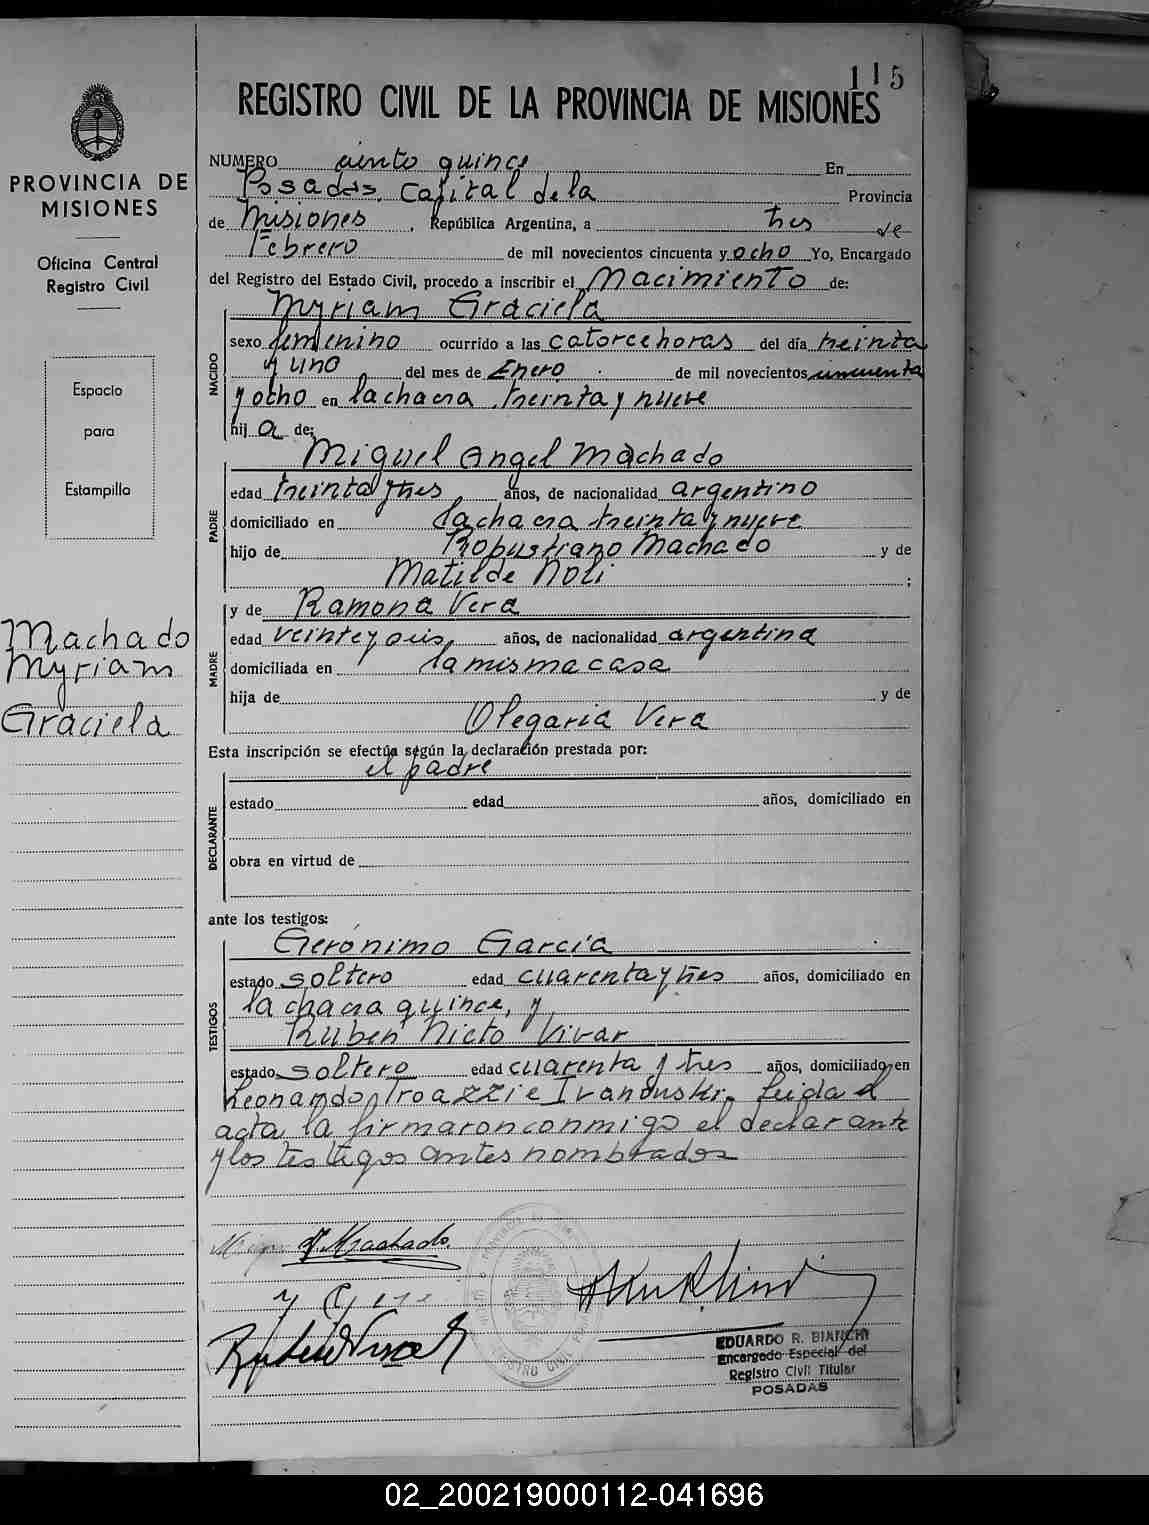 115
REGISTRO CIVIL DE LA PROVINCIA DE MISIONES
PROVINCIA DE
MISIONES
Oficina Central
Registro Civil
Espacio
para
Estampilla
Machado
Myriam
Graciela
NUMERO ciento quince En
Posadas, Capital de la Provincia
de Misiones, República Argentina, a tres de
Febrero de mil novecientos cincuenta y ocho Yo, Encargado
del Registro del Estado Civil, procedo a inscribir el Nacimiento de:
NACIDO
Myriam Graciela
sexo femenino ocurrido a las catorce horas del día treinta
y uno del mes de Enero de mil novecientos cincuenta
y ocho en la chacra treinta y nueve
hij a de:
PADRE
Miguel Angel Machado
edad treinta y tres años, de nacionalidad argentino
domiciliado en la chacra treinta y nueve
hijo de Robustiano Machado y de
Matilde Noli ;
MADRE
y de Ramona Vera
edad años, de nacionalidad argentina
domiciliada en la misma casa
hija de y de
Olegaria Vera
Esta inscripción se efectúa según la declaración prestada por:
el padre
DECLARANTE
estado edad años, domiciliado en
obra en virtud de
ante los testigos:
TESTIGOS
Gerónimo García
estado soltero edad cuarenta y tres años, domiciliado en
la chacra quince, y
Ruben Nieto Vivar
estado soltero edad cuarenta y tres años, domiciliado en
Leonardo Troazzi e Ivanouski. Leida el
acta la firmaron conmigo el declarante
y los testigos antes nombrados
M. A. Machado
EDUARDO R. BIANCHI
Encargado Especial del
Registro Civil Titular
POSADAS
02_200219000112-041696